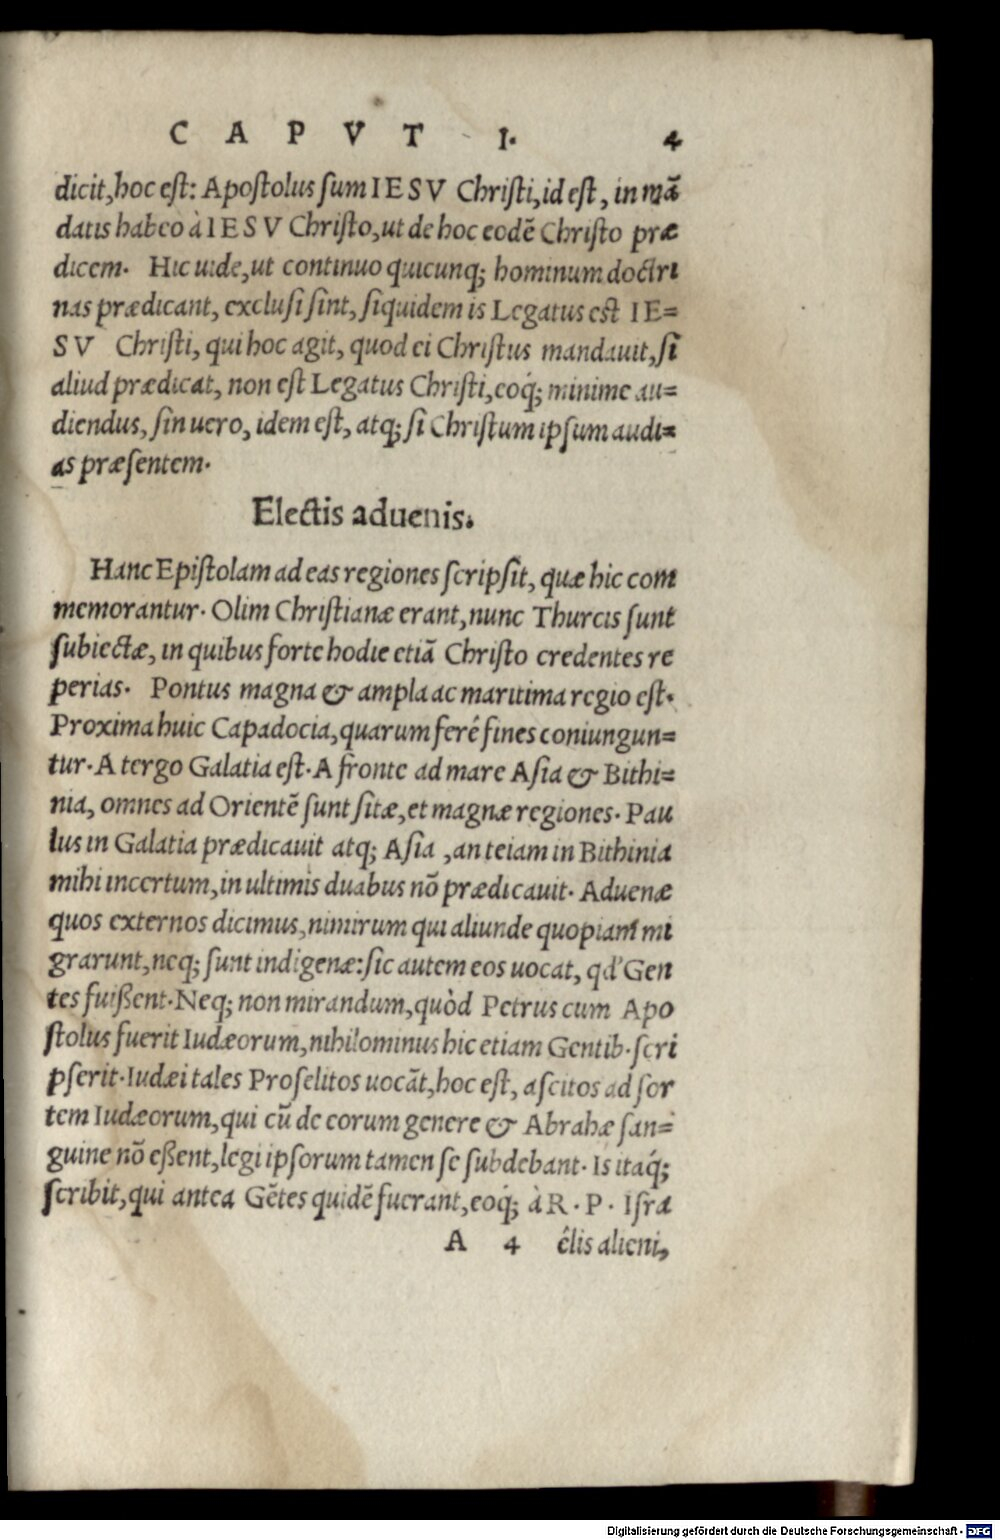 CAPVT I. 4
dicit, hoc est: Apostolus sum IESV Christi, id est, in mā
datis habeo à IESV Christo, ut de hoc eodē Christo præ
dicem. Hic uide, ut continuo quicunq; hominum doctri
nas prædicant, exclusi sint, siquidem is Legatus est IE=
SV Christi, qui hoc agit, quod ei Christus mandauit, si
aliud prædicat, non est Legatus Christi, eoq́; minime au=
diendus, sin uero, idem est, atq; si Christum ipsum audi=
as præsentem.
Electis aduenis.
Hanc Epistolam ad eas regiones scripsit, quæ hic com
memorantur. Olim Christianæ erant, nunc Thurcis sunt
subiectæ, in quibus forte hodie etiā Christo credentes re
perias. Pontus magna & ampla ac maritima regio est.
Proxima huic Capadocia, quarum ferè fines coniungun=
tur. A tergo Galatia est. A fronte ad mare Asia & Bithi=
nia, omnes ad Orientē sunt sitæ, et magnæ regiones. Pau
lus in Galatia prædicauit atq; Asia, an teiam in Bithinia
mihi incertum, in ultimis duabus nō prædicauit. Aduenæ
quos externos dicimus, nimirum qui aliunde quopiam mi
grarunt, neq; sunt indigenæ: sic autem eos uocat, qd' Gen
tes fuißent. Neq; non mirandum, quòd Petrus cum Apo
stolus fuerit Iudæorum, nihilominus hic etiam Gentib. scri
pserit. Iudæi tales Proselitos uocāt, hoc est, ascitos ad sor
tem Iudæorum, qui cū de eorum genere & Abrahæ san=
guine nō eßent, legi ipsorum tamen se subdebant. Is itaq́;
scribit, qui antea Gētes quidē fuerant, eoq́; à R. P. Isræ
A 4 êlis alieni,
Digitalisierung gefördert durch die Deutsche Forschungsgemeinschaft - DFG